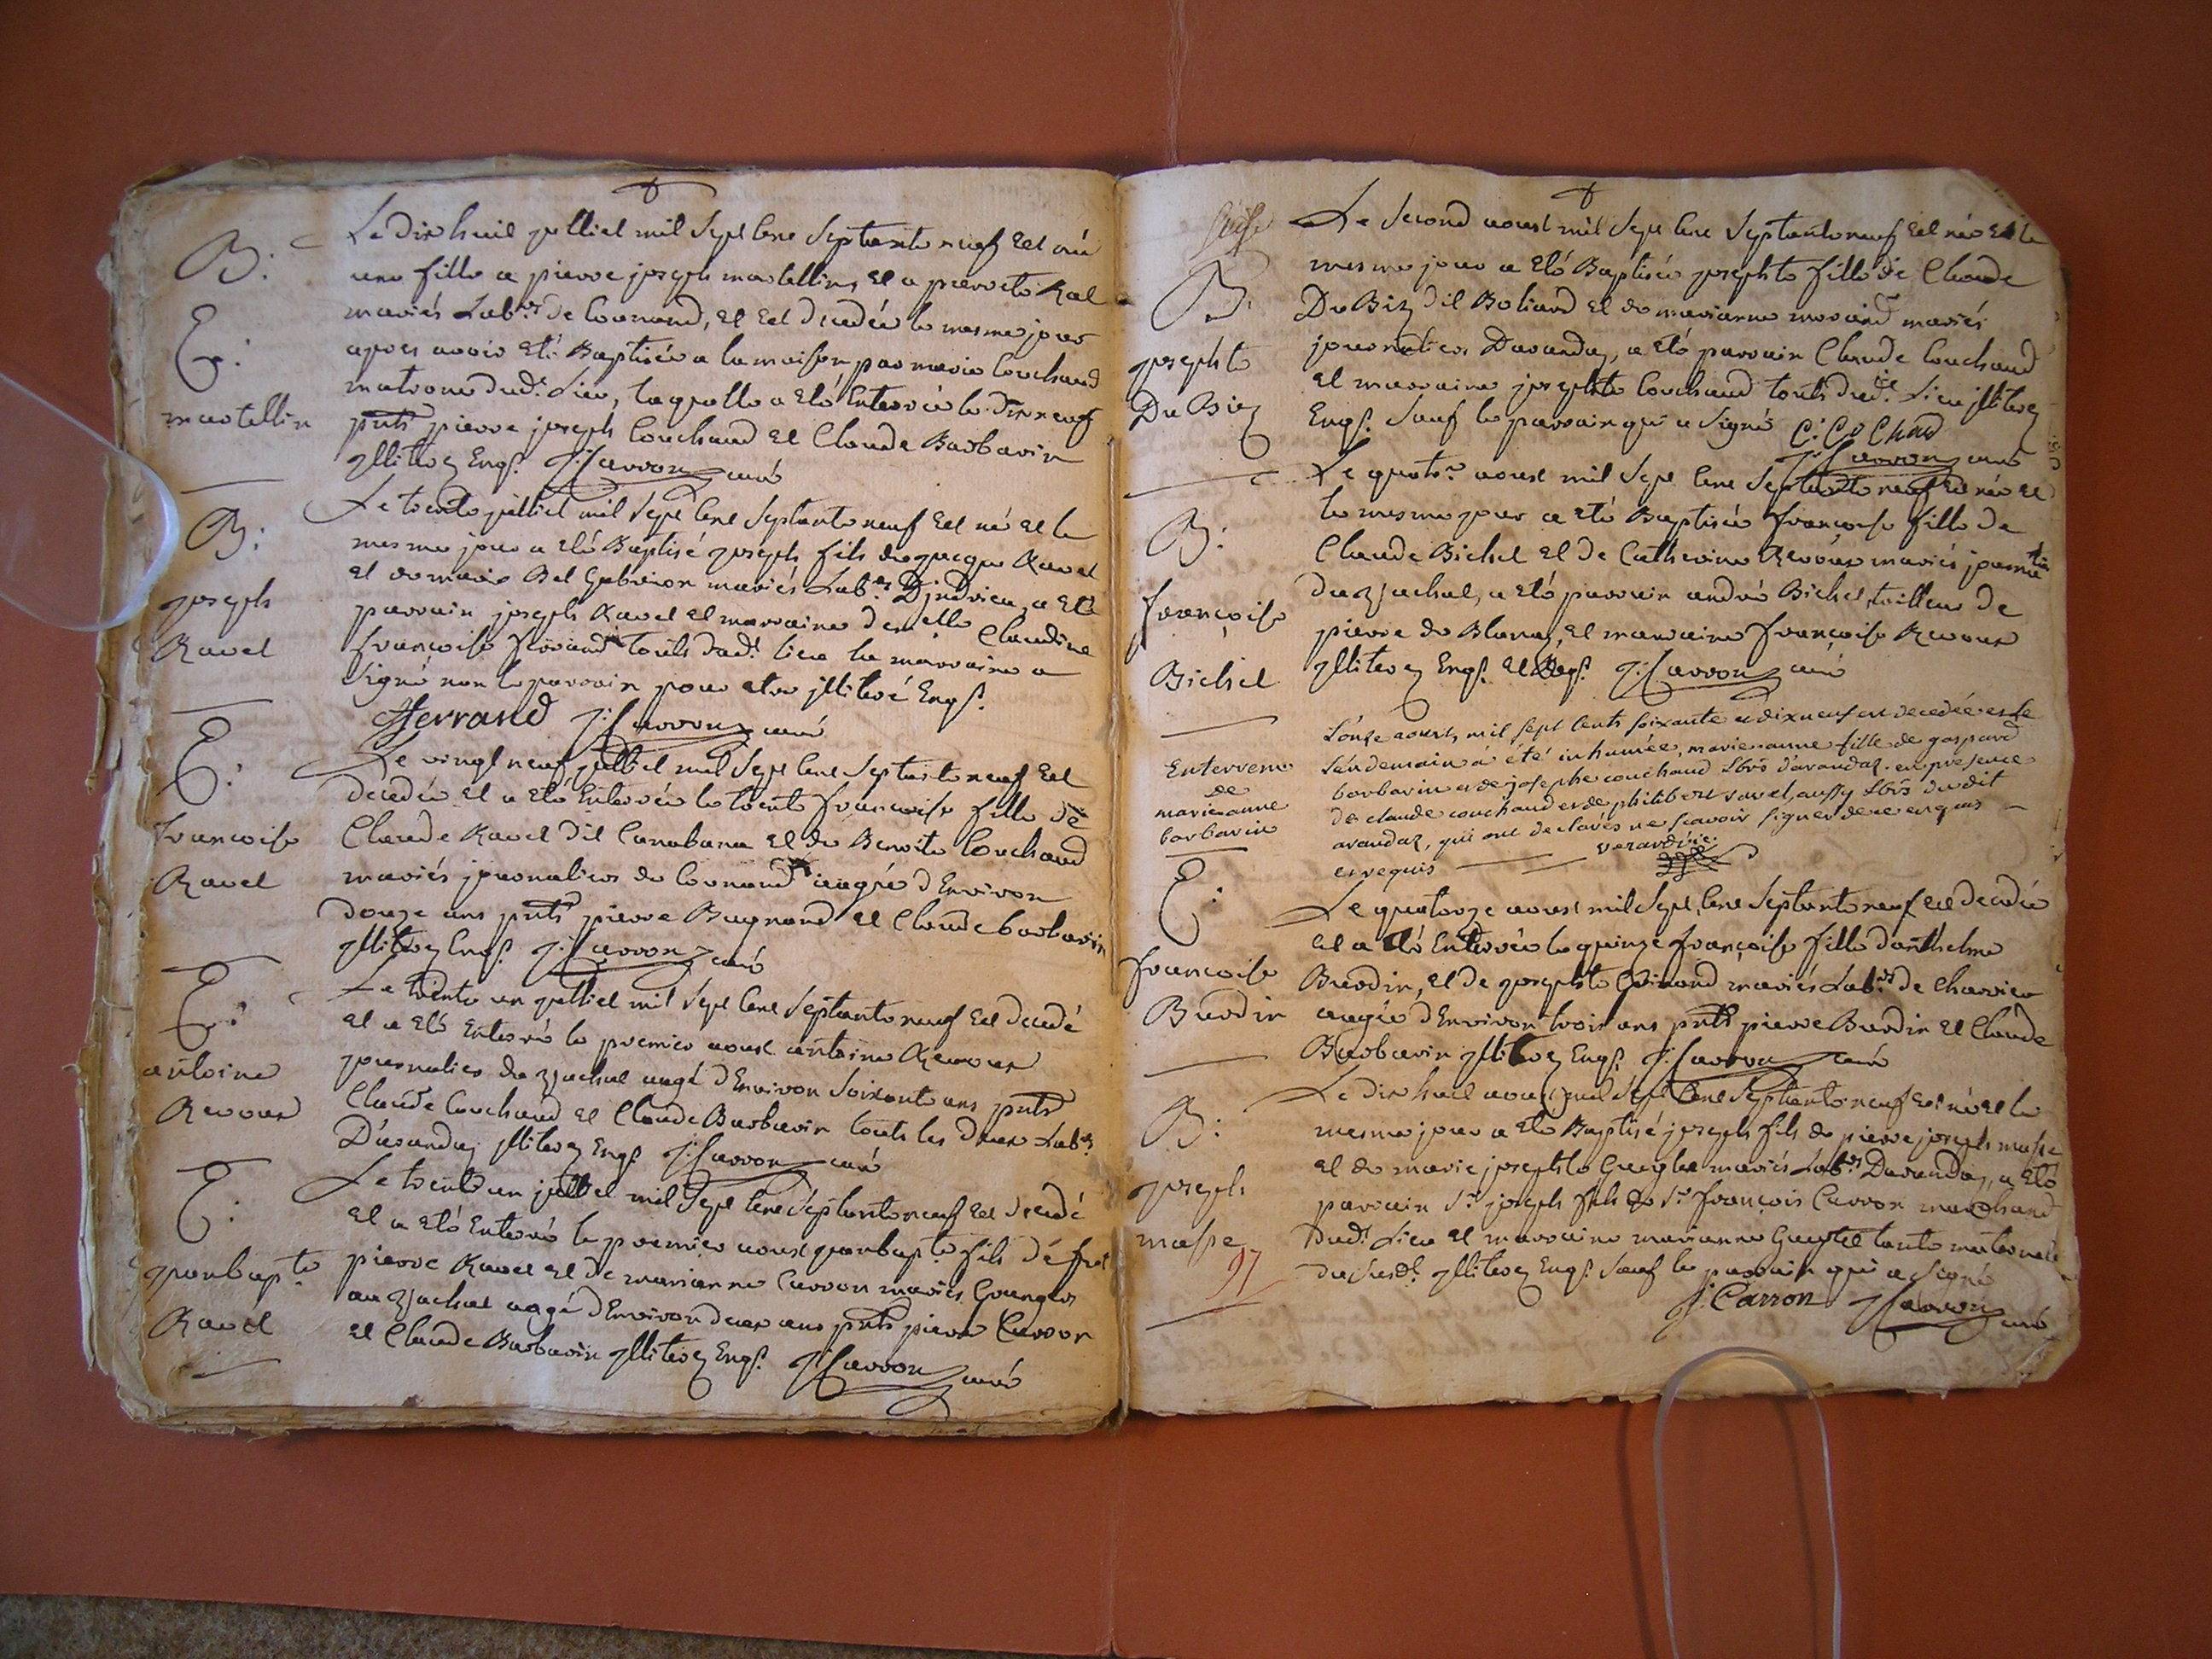 B:
E:
martellin
Le dix huit julliet mil sept cent septante neuf est née
une fille a pierre joseph martellin, et a pierrette Ravel
mariés Lab.rs de Cournand, et est decedée le mesme jour
apres avoir eté Baptisée a la maison par marie Couchand
matrone dud.t Lieu, laquelle a eté Enterrée le dix neuf
pnts pierre joseph Couchand et Claude Barbarin
jllitérés Enqs. J: Carron curé
B:
joseph
Ravel
Le trente julliet mil sept cent septante neuf est né et le
mesme jour a eté Baptisé joseph fils de jacque Ravel
et de marie Bel mariés Lab.rs D'jndrieu, a eté
parrain joseph Ravel et marraine demoiselle Claudine
françoise ferrand touts dud.t lieu la marraine a
signé non le parrain pour etre jllitéré Enqs.
fferrand J: Carron curé
E:
françoise
Ravel
Le vingt neuf julliet mil sept cent septante neuf est
decedée et a eté Enterrée le trente françoise fille de
Claude Ravel dit et de Benoite Couchand
mariés journaliers de Cournand aagée d'Environ
douze ans pnts pierre Bugnand et Claude barbarin
jllitérés Enqs. J: Carron curé
E:
antoine
Revoux
Le trente un julliet mil sept cent septante neuf est decedé
et a eté Enterré le premier aoust antoine Revoux
journalier du zjachat aagé d'Environ soixante ans pnts
Claude Couchand et Claude Barbarin touts les deux Lab.rs
D'arandaz jllitérés Enqs. J: Carron curé
E:
jeanbapt.te
Ravel
Le trente un julliet mil sept cent septante neuf est decedé
et a eté Enterré le premier aoust jeanbapt.te fils de
pierre Ravel et de marianne Carron mariés Grangers
au zjachat aagé d'Environ deux ans pnts pierre Carron
et Claude Barbarin jllitérés Enqs. J: Carron curé
B:
josephte
Du Biez
Le second aoust mil sept cent septante neuf est née et le
mesme jour a eté Baptisée josephte fille de Claude
Du Biez dit Boliard et de marianne morand mariés
journaliers Darandaz, a eté parrain Claude Couchand
et marraine josephte Couchand touts dud.t Lieu jllitérés
Enqs. sauf le parrain qui a signé C: CoChad
J: Carron curé
B:
françoise
Bichel
Le quatr.e aoust mil sept cent septante neuf est née et
le mesme jour a eté Baptisée françoise fille de
Claude Bichel et de Catherine Revoux mariés journa
du zjachat, a eté parrain andré Bichel, tailleur de
pierre de Blanaz, et marraine françoise Revoux
jllitérés Enqs. et Reqs. J: Carron curé
Enterremt
de
marieanne
barbarin
L'onze aoust, mil sept cents soixante et dix neuf est decedée et le
lendemain a été inhumée, marieanne fille de gaspard
barbarin et de josephe couchand Lbrs d'arandaz. en presence
de claude couchand et de philibert ravel, aussy Lbrs dudit
arandaz, qui ont declarés ne scavoir signer de ce enquis
et requis verard vic:
E:
françoise
Burdin
Le quatorze aoust mil sept cent septante neuf est decedée
et a eté Enterrée le quinze françoise fille d'anthelme
Burdin, et de josephte mariés Lab.rs de Charvieu
aagée d'Environ trois ans pnts pierre Burdin et Claude
Barbarin jllitérés Enqs. J: Carron curé
B:
joseph
masse
97
Le dix huit aoust mil sept cent septante neuf est né et le
mesme jour a eté Baptisé joseph fils de pierre joseph masse
et de marie josephte mariés Lab.rs Darandaz, a eté
parrain S.r joseph fils de S.r françois Carron marchand
dud.t Lieu et marraine marianne tante maternelle
du susd.t jllitérés Enqs. sauf le parrain qui a signé
J: Carron J: Carron curé